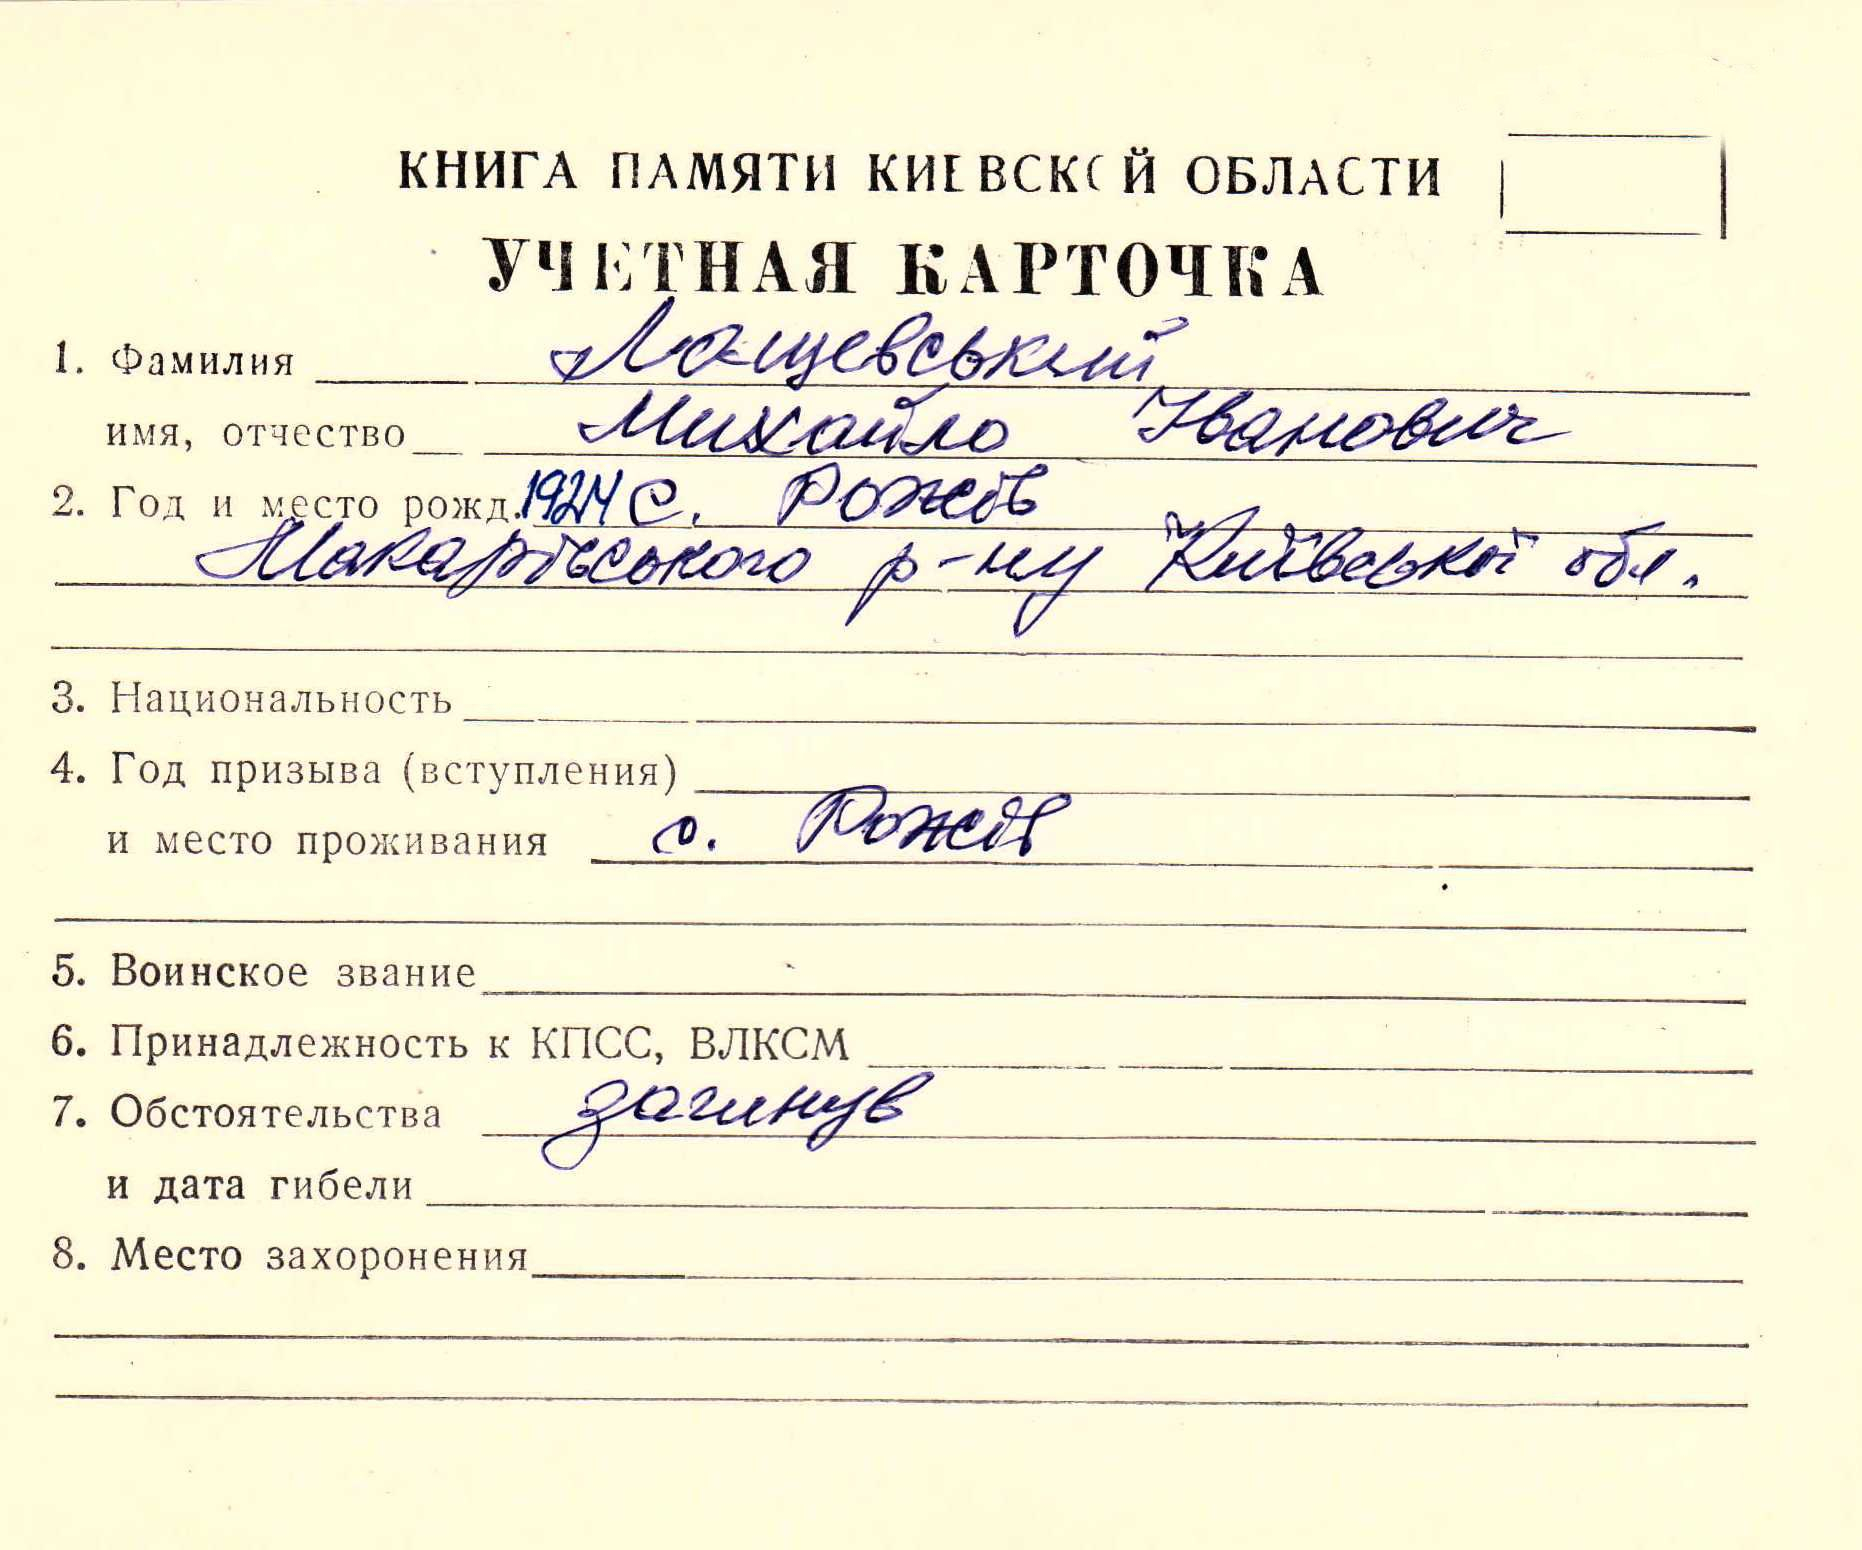 КНИГА ПАМЯТИ КИЕВСКОЙ ОБЛАСТИ
УЧЕТНАЯ КАРТОЧКА
1. Фамилия Лащевський
имя, отчество Михайло Іванович
2. Год и место рожд. 1924 с. Рожів
Макарівського р-ну Київської обл.
3. Национальность
4. Год призыва (вступления)
и место проживания с. Рожів
5. Воинское звание
6. Принадлежность к КПСС, ВЛКСМ
7. Обстоятельства загинув
и дата гибели
8. Место захоронения